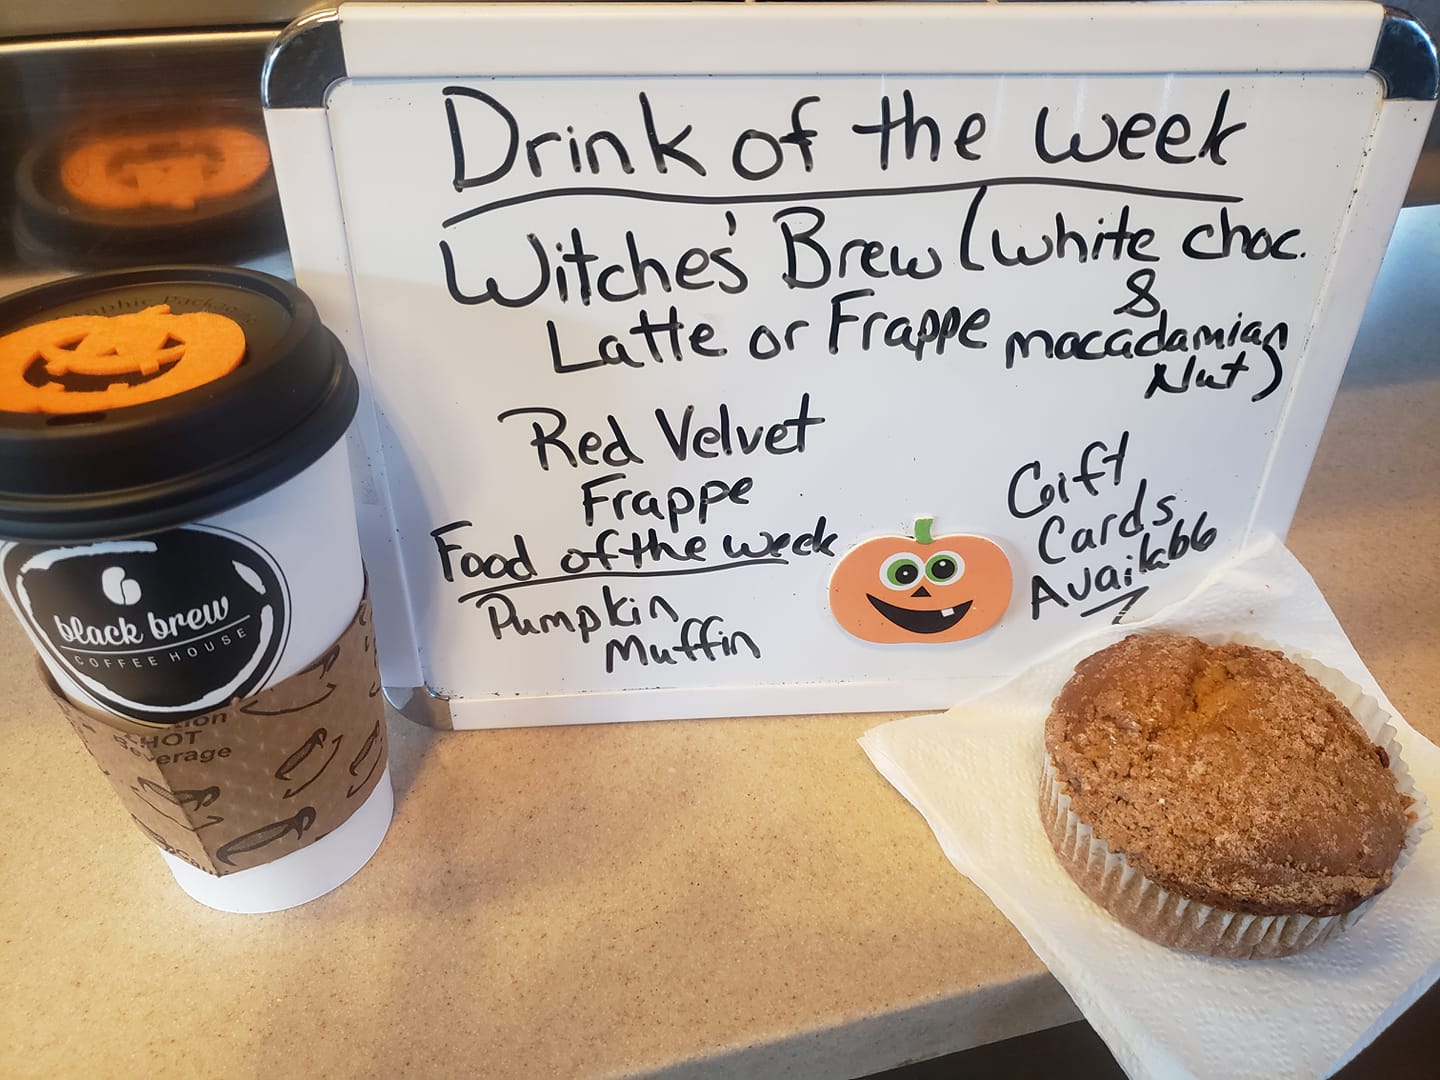 Drink of the week
Witche's Brew (white choc.
&
Latte or Frappe macadamian
Nut)
Red Velvet
Frappe
Food of the week
Pumpkin
Muffin
Gift
Cards
Available
black brew
COFFEE HOUSE
HOT
Beverage